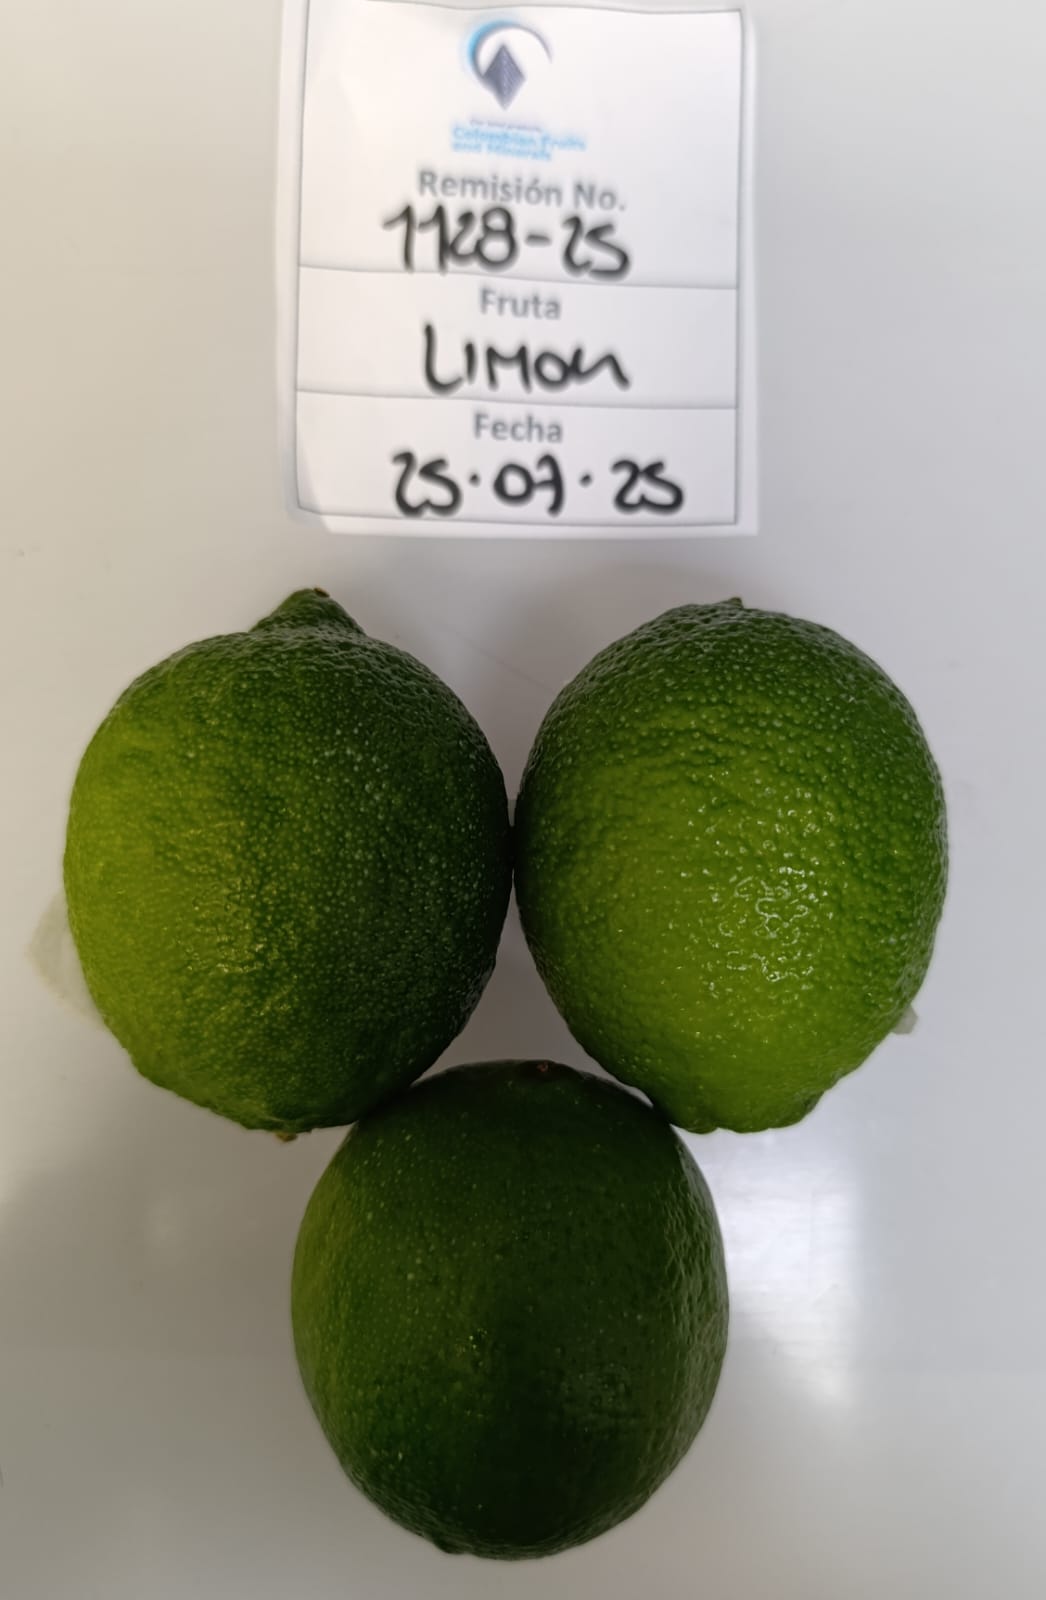 Colombian Fruits
and Minerals
Remisión No.
1128-25
Fruta
LIMON
Fecha
25·07·25